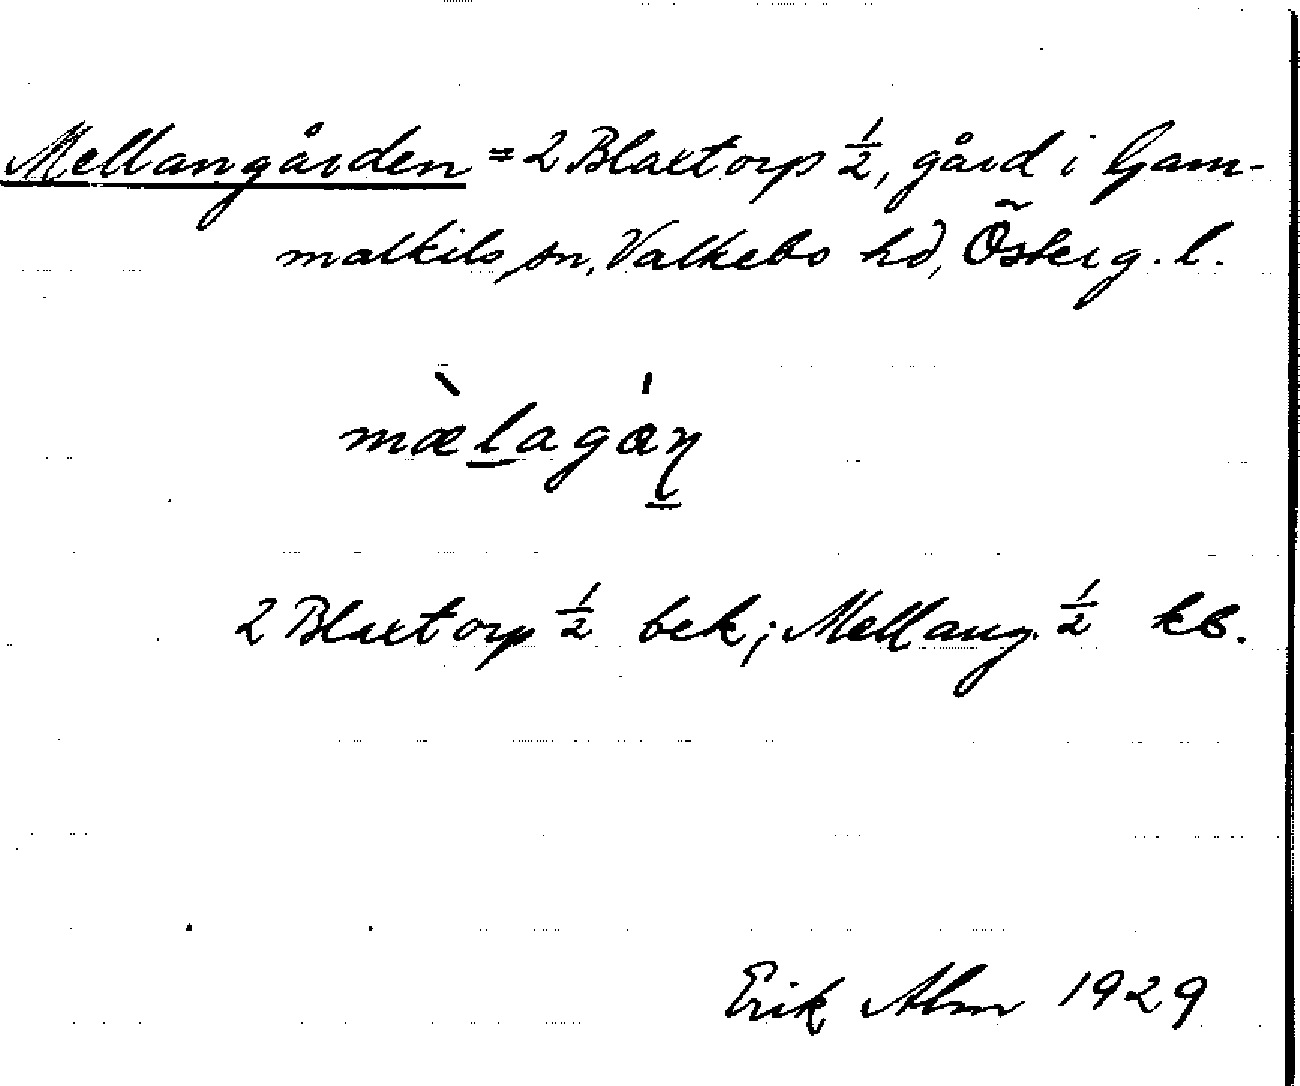 Mellangården = 2 Blaxtorp ½, gård i Gam-
malkils sn, Valkebo hd, Österg. l.
mæ̀lagáṇ
2 Blaxtorp ½ bek; Mellang. ½ kb.
Erik Alm 1929